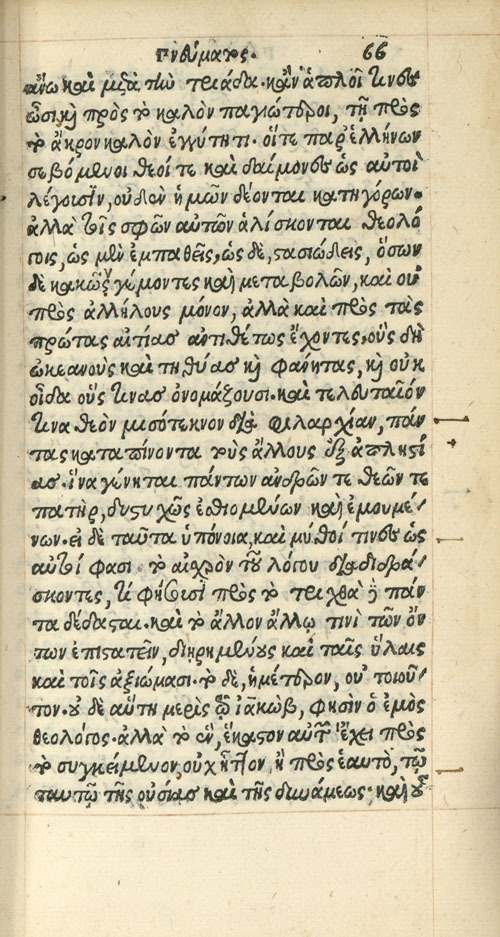 πνεύματος. 66
ἄνω καὶ μετὰ τὴν τριάδα. κἂν ἁπλοῖ τινες
ὦσι, καὶ πρὸς τὸ καλὸν παγιώτεροι, τῇ πρὸς
τὸ ἄκρον καλὸν ἐγγύτητι. οἵτε παρ' ἑλλήνων
σεβόμενοι θεοί τε καὶ δαίμονες ὡς αὐτοὶ
λέγουσιν, οὐδὲν ἡμῶν δέονται κατηγόρων.
ἀλλὰ τοῖς σφῶν αὐτῶν ἁλίσκονται θεολό
γοις, ὡς μὲν ἐμπαθεῖς, ὡς δὲ, στασιώδεις, ὅσων
δὲ κακῶν γέμοντες καὶ μεταβολῶν, καὶ οὐ
πρὸς ἀλλήλους μόνον, ἀλλὰ καὶ πρὸς τὰς
πρώτας αἰτίας ἀντιθέτως ἔχοντες, οὓς δὴ
ὠκεανοὺς καὶ τηθύας καὶ φάνητας, καὶ οὐκ
οἶδα οὕς τινας ὀνομάζουσι. καὶ τελευταῖόν
τινα θεὸν μισότεκνον διὰ φιλαρχίαν, πάν
τας καταπίνοντα τοὺς ἄλλους ἐξ ἀπληστί
ας. ἵνα γένηται πάντων ἀνδρῶν τε θεῶν τε
πατὴρ, δυστυχῶς ἐσθιομένων καὶ ἐμουμέ
νων. εἰ δὲ ταῦτα ὑπόνοια, καὶ μύθοί τινες ὡς
αὐτοί φασι. τὸ αἰσχρὸν τοῦ λόγου διαδιδρά
σκοντες, τί φήσουσι πρὸς τὸ τριχθὰ δὲ πάν
τα δέδασται. καὶ τὸ ἄλλον ἄλλῳ τινὶ τῶν ὄν
των ἐπιστατεῖν, διῃρημένους καὶ ταῖς ὕλαις
καὶ τοῖς ἀξιώμασι. τὸ δὲ, ἡμέτερον, οὐ τοιοῦ
τον. οὐδὲ αὕτη μερὶς τῷ ἰακὼβ, φησὶν ὁ ἐμὸς
θεολόγος. ἀλλὰ τὸ ἓν, ἕκαστον αὐτῶν ἔχει πρὸς
τὸ συγκείμενον, οὐχ ἧττον, ἢ πρὸς ἑαυτὸ, τῷ
ταυτῷ τῆς οὐσίας καὶ τῆς δυνάμεως. καὶ οὗ